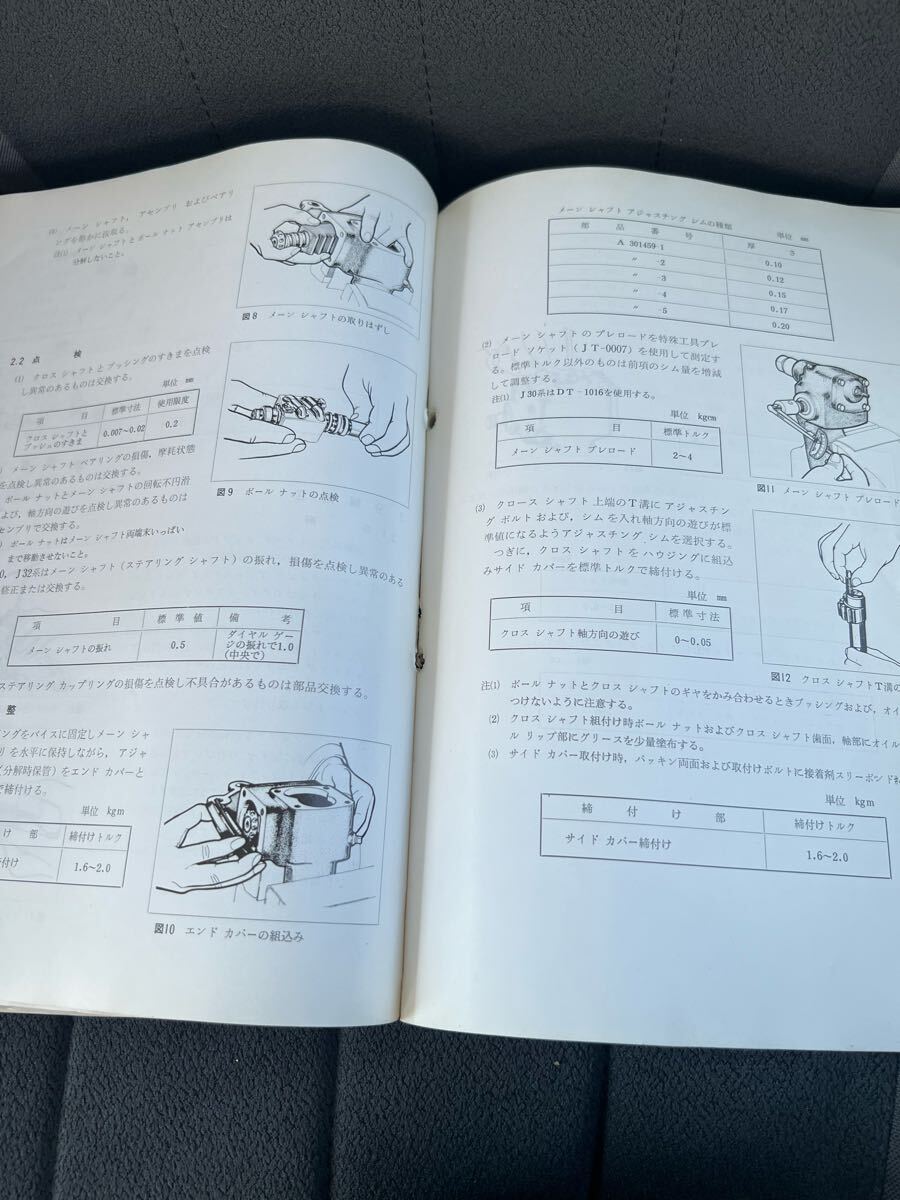 (8) メーン シャフト, アセンブリ およびベアリ
ングを静かに抜取る。
注(1) メーン シャフトとボール ナット アセンブリは
分解しないこと。
図8 メーン シャフトの取りはずし
2.2 点 検
(1) クロス シャフトとブッシングのすきまを点検
し異常のあるものは交換する。
単位 mm
項 目 標準寸法 使用限度
クロス シャフトと
ブッシュのすきま 0.007~0.02 0.2
メーン シャフト ベアリングの損傷, 摩耗状態
を点検し異常のあるものは交換する。
ボール ナットとメーン シャフトの回転不円滑
および, 軸方向の遊びを点検し異常のあるものは
センブリで交換する。
ボール ナットはメーン シャフト両端末いっぱい
まで移動させないこと。
図9 ボール ナットの点検
0, J32系はメーン シャフト (ステアリング シャフト) の振れ, 損傷を点検し異常のある
修正または交換する。
項 目 標 準 値 備 考
メーン シャフトの振れ 0.5 ダイヤル ゲー
ジの振れで1.0
(中央で)
ステアリング カップリングの損傷を点検し不具合があるものは部品交換する。
整
ングをバイスに固定しメーン シャ
リを水平に保持しながら, アジャ
(分解時保管) をエンド カバーと
で締付ける。
単位 kgm
け 部 締付けトルク
付け 1.6~2.0
図10 エンド カバーの組込み
メーン シャフト アジャスチング シムの種類
単位 mm
部 品 番 号 厚 さ
A 301459-1 0.10
〃 -2 0.12
〃 -3 0.15
〃 -4 0.17
〃 -5 0.20
(2) メーン シャフトのプレロードを特殊工具プレ
ロード ソケット (JT-0007) を使用して測定す
る。標準トルク以外のものは前項のシム量を増減
して調整する。
注(1) J30系はDT-1016を使用する。
単位 kgcm
項 目 標準トルク
メーン シャフト プレロード 2~4
図11 メーン シャフト プレロード
(3) クロース シャフト上端のT溝にアジャスチン
グ ボルトおよび, シムを入れ軸方向の遊びが標
準値になるようアジャスチング シムを選択する。
つぎに, クロス シャフトをハウジングに組込
みサイド カバーを標準トルクで締付ける。
単位 mm
項 目 標準寸法
クロス シャフト軸方向の遊び 0~0.05
図12 クロス シャフトT溝の
注(1) ボール ナットとクロス シャフトのギヤをかみ合わせるときブッシングおよび, オイ
つけないように注意する。
(2) クロス シャフト組付け時ボール ナットおよびクロス シャフト歯面, 軸部にオイル
ル リップ部にグリースを少量塗布する。
(3) サイド カバー取付け時, パッキン両面および取付けボルトに接着剤スリーボンド
単位 kgm
締 付 け 部 締付けトルク
サイド カバー締付け 1.6~2.0